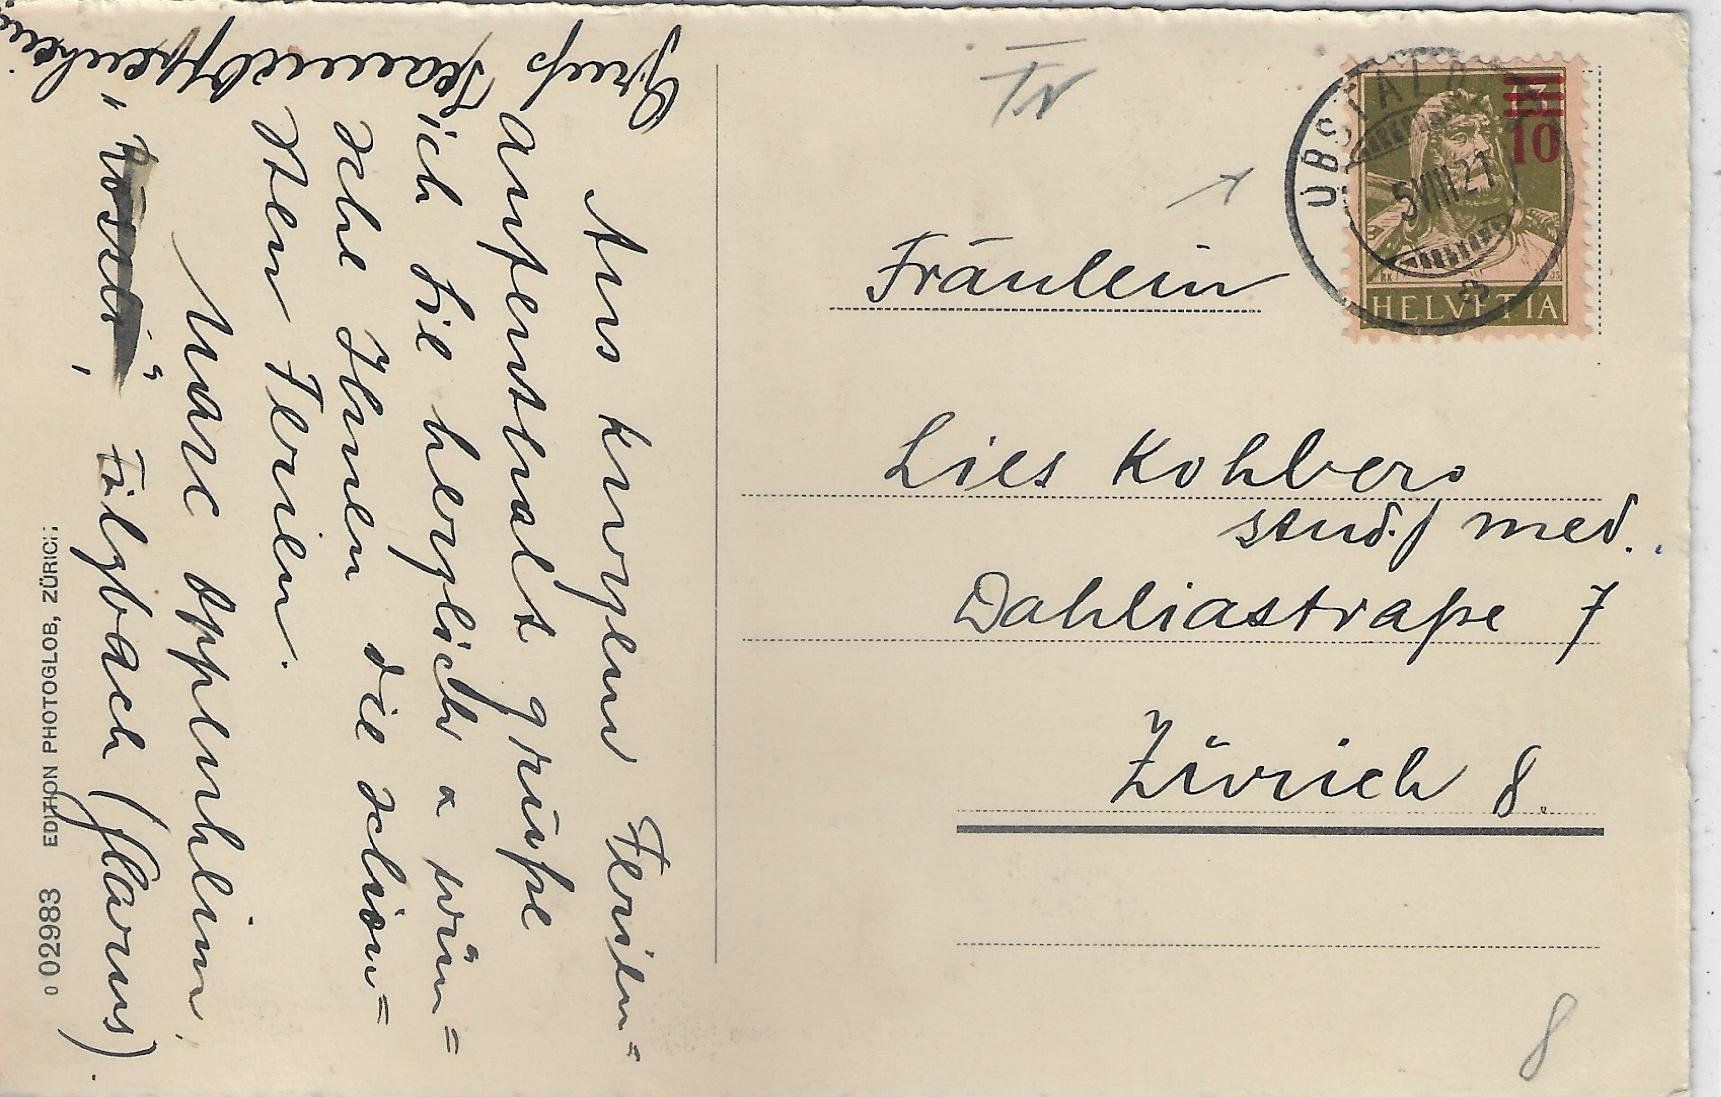 Aus kurzem Ferien=
aufenthalt grüße
ich Sie herzlich u wün=
sche Ihnen die schön=
sten Ferien.
Marc Oppenheim,
"Rössli", Filzbach (Glarus).
Gruß
Oppenheim
EDITION PHOTOGLOB, ZÜRICH
0 02983
Tr
Fräulein
Lies Kohberg
stud. med.
Dahliastraße 7
Zürich 8.
8
OBSTALDEN
5 VIII 21
10
HELVETIA